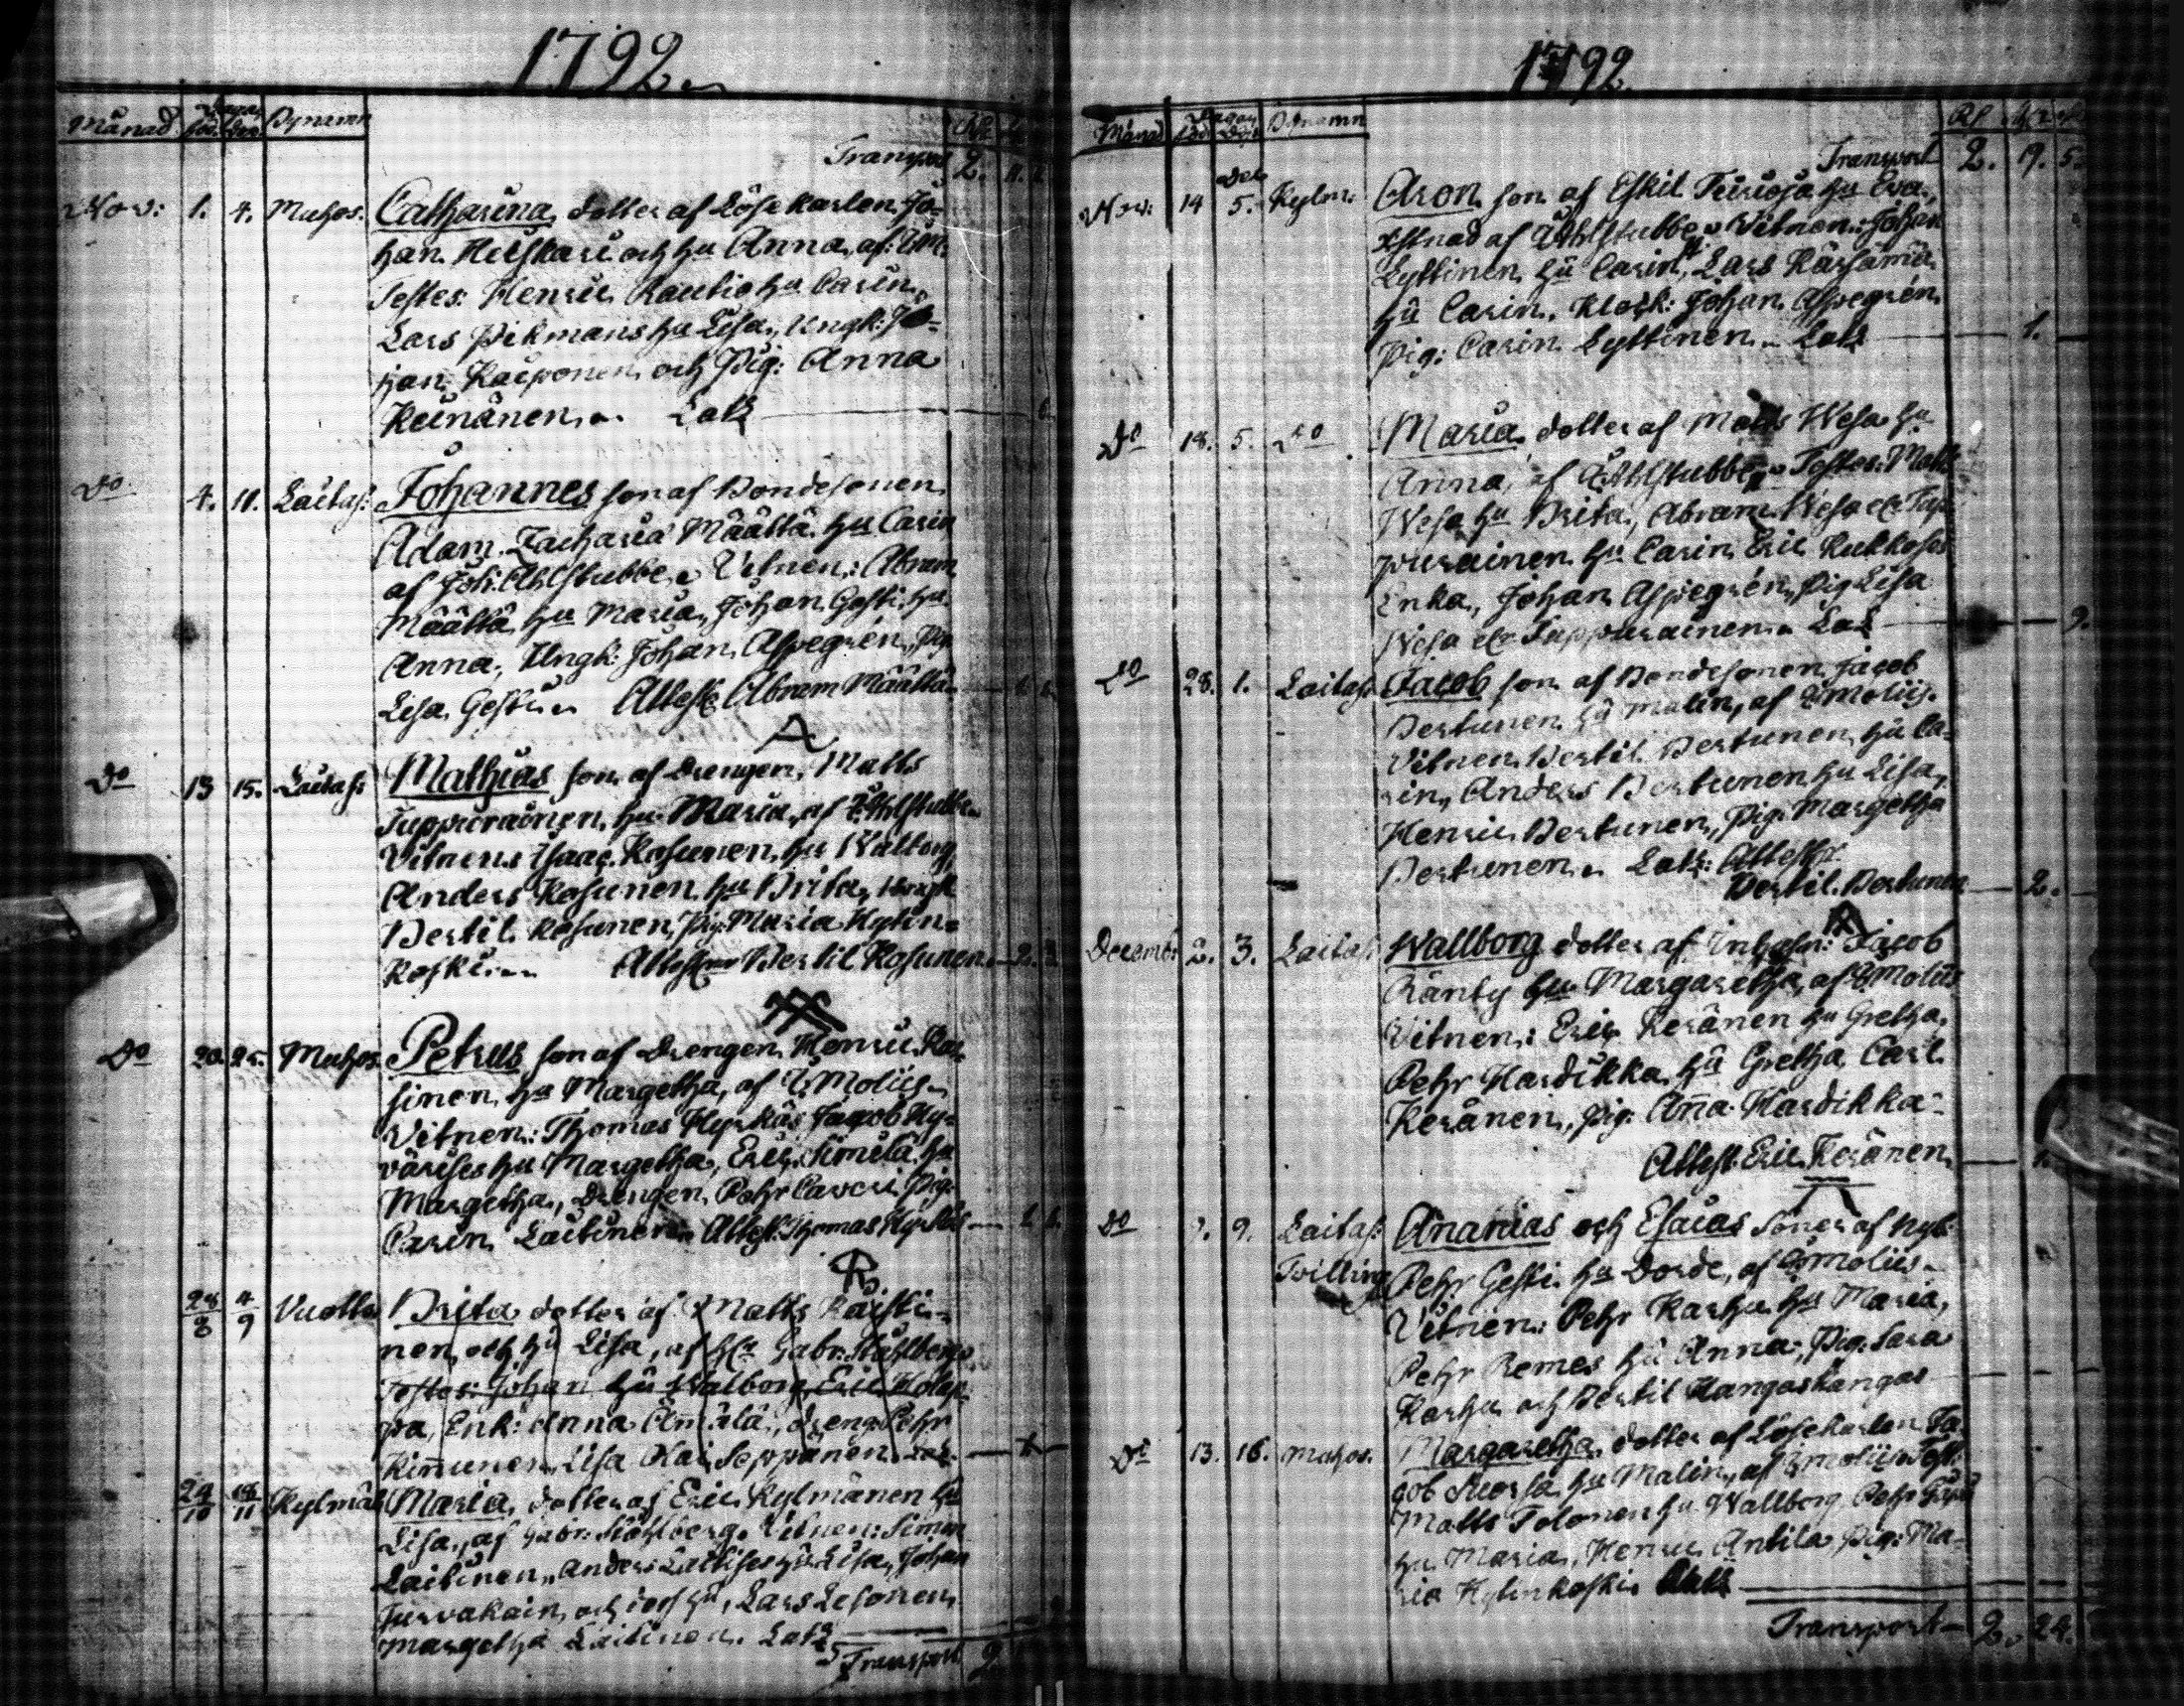 1792.
Månad Dagar Bynamn
föd. döp.
Transport 2. 11.
Nov: 1. 4. Muhos. Catharina, dotter af Lösekarlen Jo-
han Heiskari och hu Anna, af:
Testes: Henric Rautio hu Carin,
Lars Pikmans hu Lisa, Ungk: Jo-
han Karponen och Pig: Anna
Keinänen,
Do 4. 11. Laitas: Johannes son af Bondesonen
Adam Zacharia Määttä hu Carin
af Joh: Ahlstubbe. Vitnen: Abram
Määttä hu Maria, Johan Gesti, hu
Anna, Ungk: Johan Aspegrén, Pig
Lisa Gesti. Attest. Abram Määttä
Do 13 15. Laitas: Mathias son af Drengen, Matts
Tuppurainen, hu Maria, af Ahlstubbe
Vitnen: Isaac Kosunen, hu Walborg,
Anders Kosunen hu Brita, Ungk
Bertil Kosunen, Pig: Maria Hylün-
koski. Attest Bertil Kosunen 2.
Do 20. 25. Muhos. Petrus son af Drengen Henric
sinen, hu Margetha, af Z: Moliis
Vitnen: Thomas Hyrkäs Jacob Hy-
värises hu Margetha, Eric Similä hu
Margetha, Drengen Pehr Laveri Pig.
Carin Laitinen Attest. Thomas Hyrkäs 1
28/8 4/9 Vuotto Brita dotter af Matts
nen, och hu Lisa, af Gabr: Ståhlberg
Testes: Johan hu Walborg, Eric Holap-
pa, Enk: Anna Ämälä, dreng Pehr
Kinnunen, Lisa Kai Seppänen
29/10 18/11 Kylmäl: Maria, dotter af Eric Kylmänen hu
Lisa, af Gabr: Ståhlberg. Vitnen: Simon
Laitinen, Anders Laitises hu Lisa, Johan
Jurvakain, och dess hu, Lars Lesonen,
Margetha Laitinen.
Transport 2.
1792.
Månad Dagar Bynamn
föd. döp.
Transport 2. 19. 5.
Nov: 14 Dec 5. Kylm: Aron son af Eskil Teirioja hu Eva,
döptnad af Ahlstubbe. Vitnen: Johan
Lyttinen hu Carin, Lars Kärsämä
hu Carin, Klock: Johan Aspegrén,
Pig: Carin Lyttinen. 1.
Do 18. 5. Do Maria, dotter af Matts Wesa hu
Anna, af Ahlstubbe. Testes: Matts
Wesa hu Brita, Abram Wesa el: Tup-
purainen hu Carin, Eric Kukkoses
Enka, Johan Aspegrén, Pig Lisa
Wesa el: Tuppurainen. 9.
Do 28. 1. Laitas: Jacob son af Bondesonen Jacob
Bertunen hu Malin, af Z: Moliis.
Vitnen Bertil Bertunen, hu Ca-
rin, Anders Bertunen hu Lisa,
Henric Bertunen, Pig: Margetha
Bertunen. Attest:
Bertil Bertunen 2.
Decemb: 2. 3. Laitas: Wallborg dotter af Inhysn: Jacob
Ränby hu Margaretha, af Z: Moliis
Vitnen: Eric Keränen hu Gretha,
Pehr Hardikka hu Gretha, Carl
Keränen, Pig: Anna Hardikka.
Attest: Eric Keränen 1.
Do 9. 9. Laitas: Ananias och Esaias söner af Nyb:
Tvilling Pehr Gesti hu Dorde, af Z: Moliis.
Vitnen: Pehr Karhu hu Maria,
Pehr Remes hu Anna, Pig: Sara
Karhu och Bertil Kangaskangas
Do 13. 16. Muhos. Margaretha, dotter af Lösekarlen Ja-
cob Muorsa hu Malin, af Z: Moliis Test:
Matts Tolonen hu Wallborg, Pehr
hu Maria, Henric Antila, Pig: Ma-
ria Hylinkoski.
Transport 2. 24.